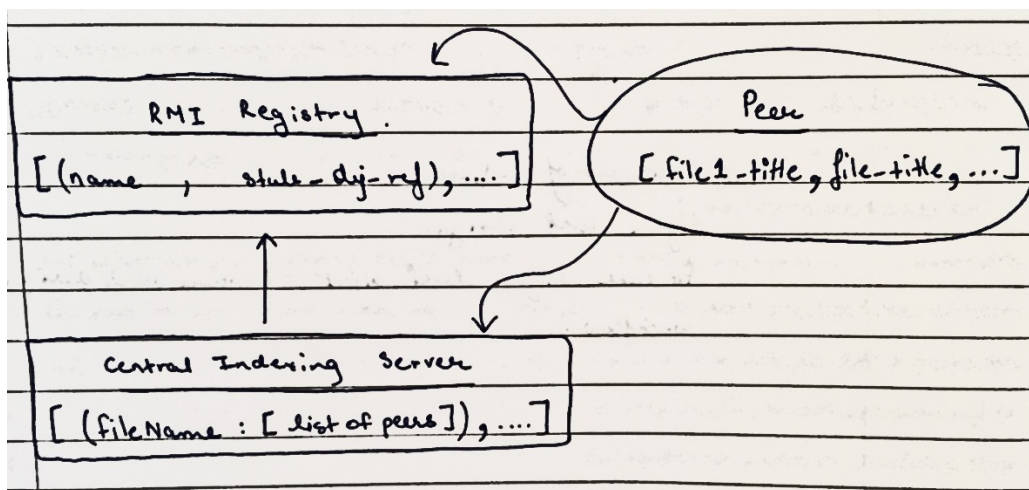 RMI Registry.
[(name, stub_obj_ref), ....]
Peer
[file1_title, file_title, ...]
Central Indexing Server
[(fileName : [list of peers]), ....]